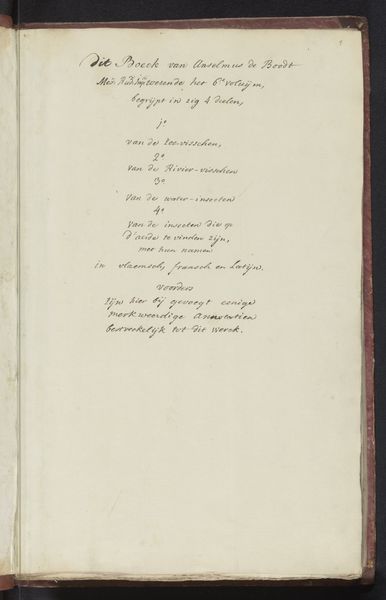 dit Boeck van Anselmus de Boodt
wesende het 6de volúÿm,
begrÿpt in zig 4 deelen,
1o
van de zee-visschen,
2o
van de Rivier-visschen
3o
van de water-insecten
4o
van de insecten die op
d'aerde te vinden zÿn,
met hun namen
in vlaemsch, fransch en Latÿn.
voorders
zÿn hier bÿ gevoegt eenige
merkweerdige Annotatien
betreckelÿk tot dit werck.